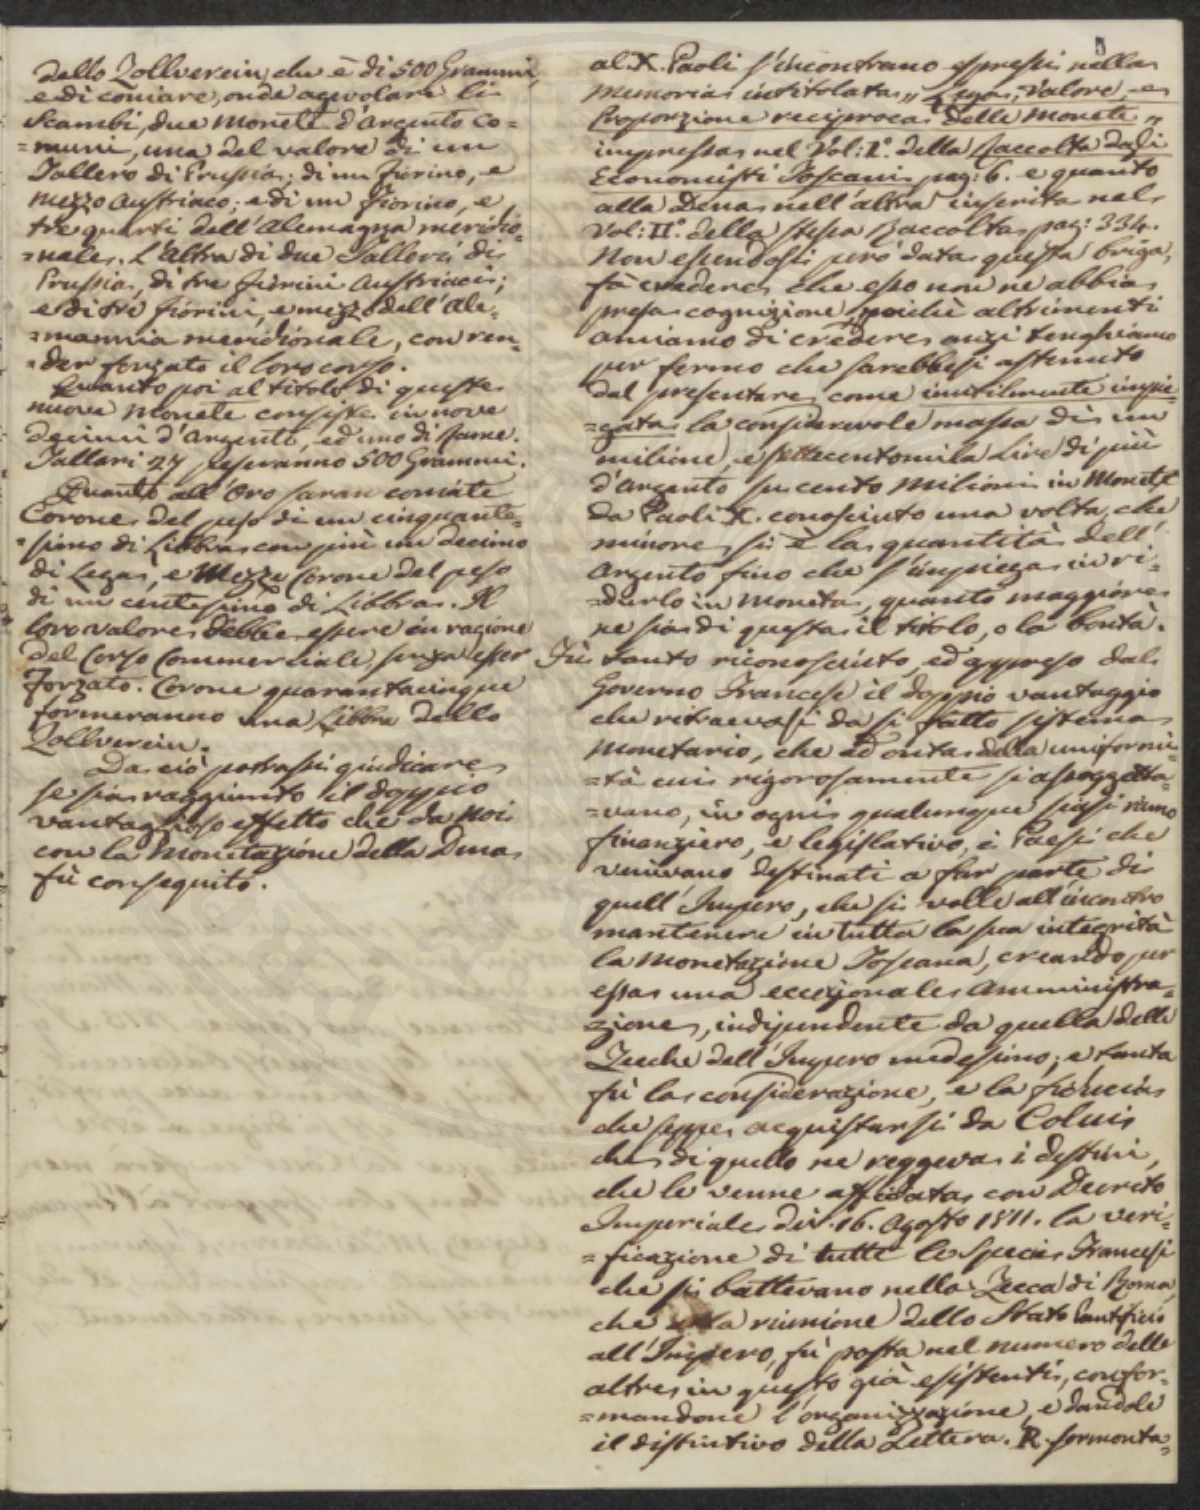 dello Zollverein, che è di 500 Grammi,
e di coniare, onde agevolare li
Scambi, due Monete d'Argento co-
=muni, una del valore di un
Tallero di Prussia; di un fiorino, e
mezzo Austriaco; e di un fiorino, e
tre quarti dell'Alemagna meridio-
=nale. L'Altra di due Talleri di
Prussia, di tre fiorini Austriaci;
e di tre fiorini, e mezzo dell'Ale-
=mannia meridionale, con ren-
=der forzato il loro corso.
Quanto poi al titolo di queste
nuove Monete consiste in nove
decimi d'Argento, ed uno di Rame.
Tallari 27 peseranno 500 Grammi.
Quanto all'Oro saran coniate
Corone del peso di un cinquante-
=simo di Libbra con più un decimo
di Lega, e Mezze Corone del peso
di un centesimo di Libbra. Il
loro valore debbe essere in ragione
del Corso Commerciale, senza esser
Forzato. Corone quarantacinque
formeranno una Libbra dello
Zollverein.
Da ciò potrassi giudicare
se sia raggiunto il doppio
vantaggioso effetto che da noi
con la Monetazione della Dena
fù conseguito.
5
al X. Paoli s'incontrano espressi nella
Memoria intitolata „ Lega, Valore e
Proporzione reciproca delle Monete „
impressa nel Vol: I°. della Raccolta degli
Economisti Toscani pag: 6. e quanto
alla Dena nell'altra inserita nel
Vol: II°. della stessa Raccolta pag: 334.
Non essendosi però data questa briga,
fà credere che esso non ne abbia
presa cognizione, poichè altrimenti
amiamo di credere anzi tenghiamo
per fermo che sarebbesi astenuto
dal presentare come inutilmente impie-
=gata la considerevole massa di un
milione, e settecentomila Lire di più
d'Argento su cento Milioni in Monete
da Paoli X. conosciuto una volta, che
minore si è la quantità dell'
Argento fino che s'impiega in ri-
=durlo in Moneta, quanto maggiore
ne sia di questa il titolo, o la bontà.
Fù tanto riconosciuto, ed appreso dal
Governo Francese il doppio vantaggio
che ritraevasi da si fatto sistema
Monetario, che ad onta della uniformi-
=tà cui rigorosamente si assoggetta-
=vano, in ogni qualunque siasi ramo
finanziero, e legislativo, i Paesi che
venivano destinati a far parte di
quell'Impero, che si volle all'incontro
mantenere in tutta la sua integrità
la Monetazione Toscana, creando per
essa una eccezionale Amministra-
=zione, indipendente da quella delle
Zecche dell'Impero medesimo; e tanta
fù la considerazione, e la fiducia
che seppe acquistarsi da Colui
che di quello ne reggeva i destini,
che le venne affidata con Decreto
Imperiale de' 16. Agosto 1811. la veri-
=ficazione di tutte le Specie Francesi
che si battevano nella Zecca di Roma,
che riunione dello Stato Pontificio
all'Impero, fù posta nel numero delle
altre in questo già esistenti, confor-
=mandone l'organizzazione, e dandole
il distintivo della Lettera. R sormonta-